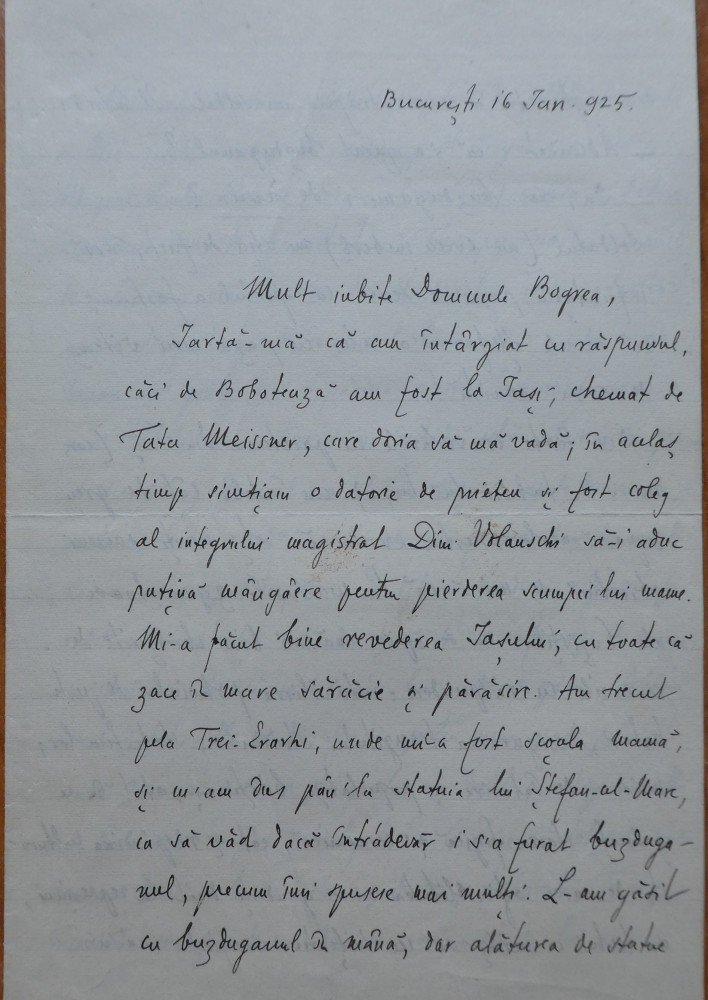 București 16 Ian. 925.
Mult iubite Domnule Bogrea,
Iartă-mă că am întârziat cu răspunsul,
căci de Bobotează am fost la Iași, chemat de
Tata Meissner, care doria să mă vadă; în acelaș
timp simțiam o datorie de prieten și fost coleg
al integrului magistrat Dim. Volanschi să-i aduc
puțină mângâere pentru pierderea scumpei lui mame.
Mi-a păcut bine revederea Iașului, cu toate că
zace în mare sărăcie și părăsire. Am trecut
pela Trei-Erarhi, unde mi-a fost școala mamă,
și m'am dus pân'la statuia lui Ștefan-al-Mare,
ca să văd dacă întrădevăr i s'a furat buzduga-
nul, precum îmi spusese mai mulți. L-am găsit
cu buzduganul în mână, dar alăturea de statue